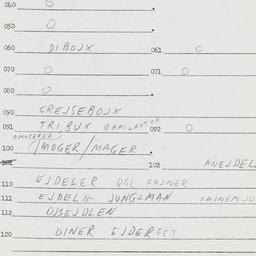 040 0
050 0
060 DIBOJX 061 0
070 0 071 0
080 0
090 GREJSEBOJX
091 TRIBUX 092 0
100 IMOGER/MAGER
102 ANEJDEL
110 EJDELER FAJNER
111 EJDELN JUNGLMAN FAJNEMJU
112 OJSEJDLEN
120 DINER EJDER